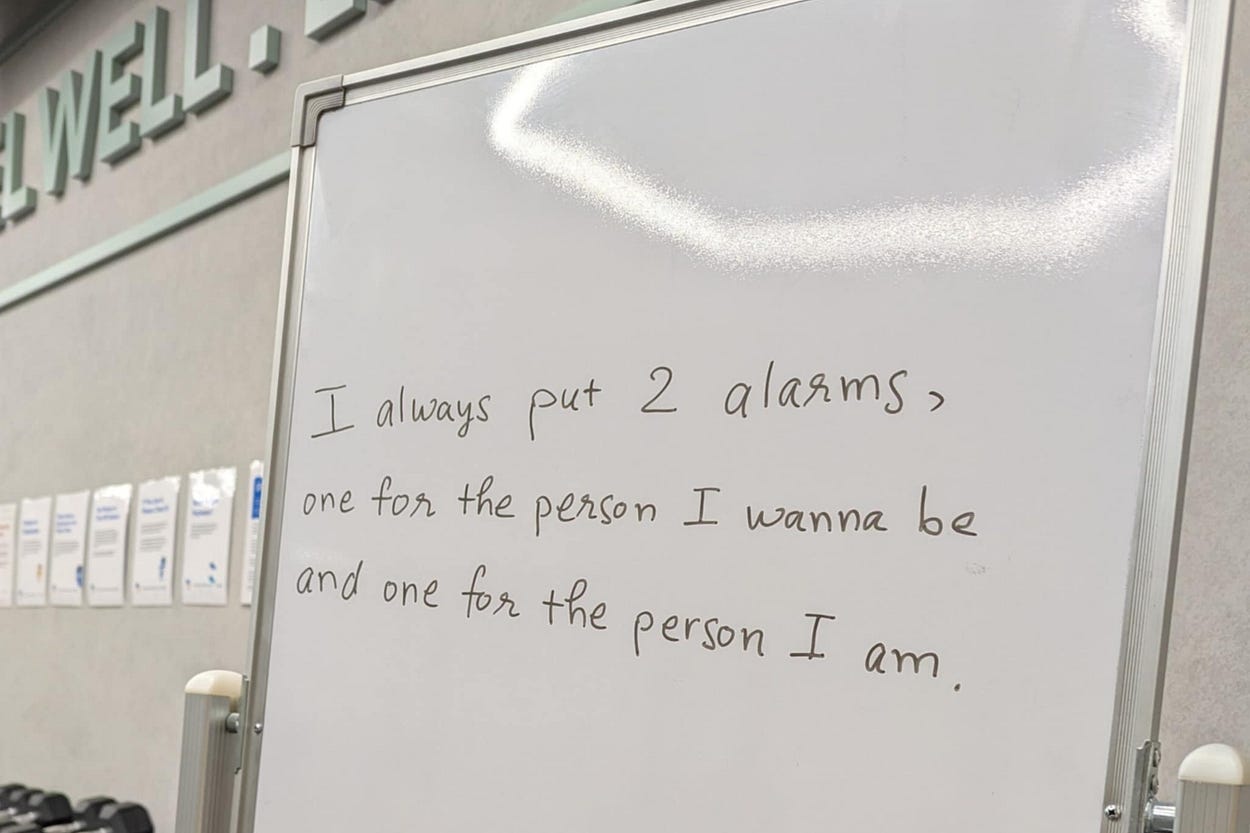 WELL.
I always put 2 alarms,
one for the person I wanna be
and one for the person I am.